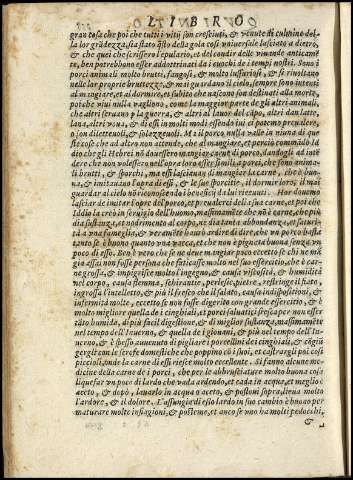 LIBRO
gran cosa che poi che tutti i vitij son cresciuti, & venute di culmine del-
la lor grãdezza, sia stato q̃sto della gola cosi universale lasciato a dietro,
& che quei che scrissero l'epulario, et del condir delle vivande anticamẽ-
te, ben potrebbono esser addottrinati da i cuochi de i tempi nostri. Sono i
porci animali molto brutti, fangosi, & molto lussuriosi, & si rivoltano
nelle lor proprie bruttezze, & mai guardano il cielo, sempre sono intenti
al mangiare, et al dormire, et subito che nascono son destinati alla morte,
poi che vivi nulla vagliono, come la maggior parte de gli altri animali,
che altri servano p̃ la guerra, & altri al lavor del cãpo, altri dan latte,
lana, altri vova, & di essi in molti modi essendo vivi ne potemo prevalere,
o ver dilettevoli, & solazzevoli. Ma il porco nulla vale in niuna di que
ste cose che ad altro non attende, che al mangiare, et perciò comandò Id
dio che gli Hebrei nõ dovessero mangiar carne di porco, dandogli ad inten
dere che non volessero nell'opra loro esser simili a porci, che sono anima-
li brutti, & sporchi, ma essi lasciano si mangiar la carne, che è buo-
na, & imitavano l'opra di essi, & le sue sporcitie, il dormir loro, il mai
guardar al cielo nõ riconoscendo i beneficij da lui ricevuti. Noi dovemo
lasciar de imitar l'opre del porco, et prevalerci della sua carne, et poi che
Iddio la creò in servigio dell'huomo, massimamẽte che nõ è carne, che piu
dia sustanza, et nodrimento al corpo, ne dia tante abbondanza, et saturi-
tà a una famiglia, & veramẽte hò ardire di dire, che un porco basta
tanto se è buono quanto una vacca, et che non è pignata buona senza un
poco di esso. Ben è vero che si ne deve mangiar poco eccetto se chi ne mã
gia assai non fusse persona che faticasse molto nel suo essercitio, che è car-
ne grossa, & impigrisce molto l'ingegno, & causa viscosità, & humidità
nel corpo, causa flemma, schirantie, persiche, pietre, restringe il fiato,
ingrossa l'intelletto, & piu il fresco che il salato, causa indispositioni, &
infermità molte, eccetto se non fusse digerito con grande essercitio, & è
molto migliore quella de i cinghiali, et porci salvatici, secca per non esser
tãto humida, di piu facil digestione, & di miglior sustanza, massimamẽte
nel tempo dell'inverno, & quella de i giovani, & piu nel tempo dell'in-
verno, & è spesso avenuto di pigliare i porcellini de i cinghiali, & cõgiũ
gergli con le scrofe domestiche che poppino con i suoi, et castrargli poi cosi
piccioli, onde la carne di essi riesce molto eccellente. Si fanno alcune me-
dicine della carne de i porci, che per le abbrusciature molto buona cosa
liquefar un poco di lardo che vada ardendo, et cada in acqua, et meglio è
aceto, & dopò, lavarlo in acqua o aceto, & postoni sopra, lieva molto
l'ardore, & il dolore. L'assungia di esso lardo in suo cambio è buono per
maturare molto infiagioni, & posteme, et anco se uno ha molti pedocchi,
&